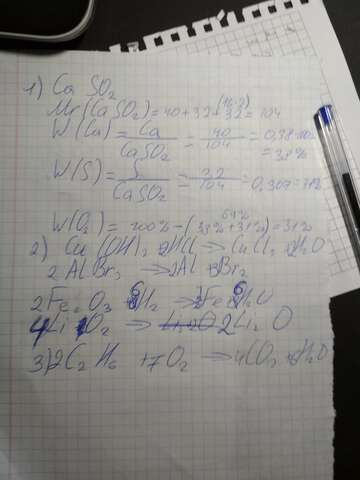 1) Ca SO₂
(16·2)
Mr(CaSO₂) = 40 + 32 + 32 = 104
W(Ca) = Ca/CaSO₂ = 40/104 = 0,38·100
= 38%
W(S) = S/CaSO₂ = 32/104 = 0,307 = 31%
69%
W(O₂) = 100% - (38% + 31%) = 31%
2) Cu(OH)₂ + 2HCl → CuCl₂ + 2H₂O
2AlBr₃ → 2Al + 3Br₂
2Fe₂O₃ + 6H₂ → 4Fe + 6H₂O
4Li + O₂ → 2Li₂O
3) 2C₂H₆ + 7O₂ → 4CO₂ + 6H₂O